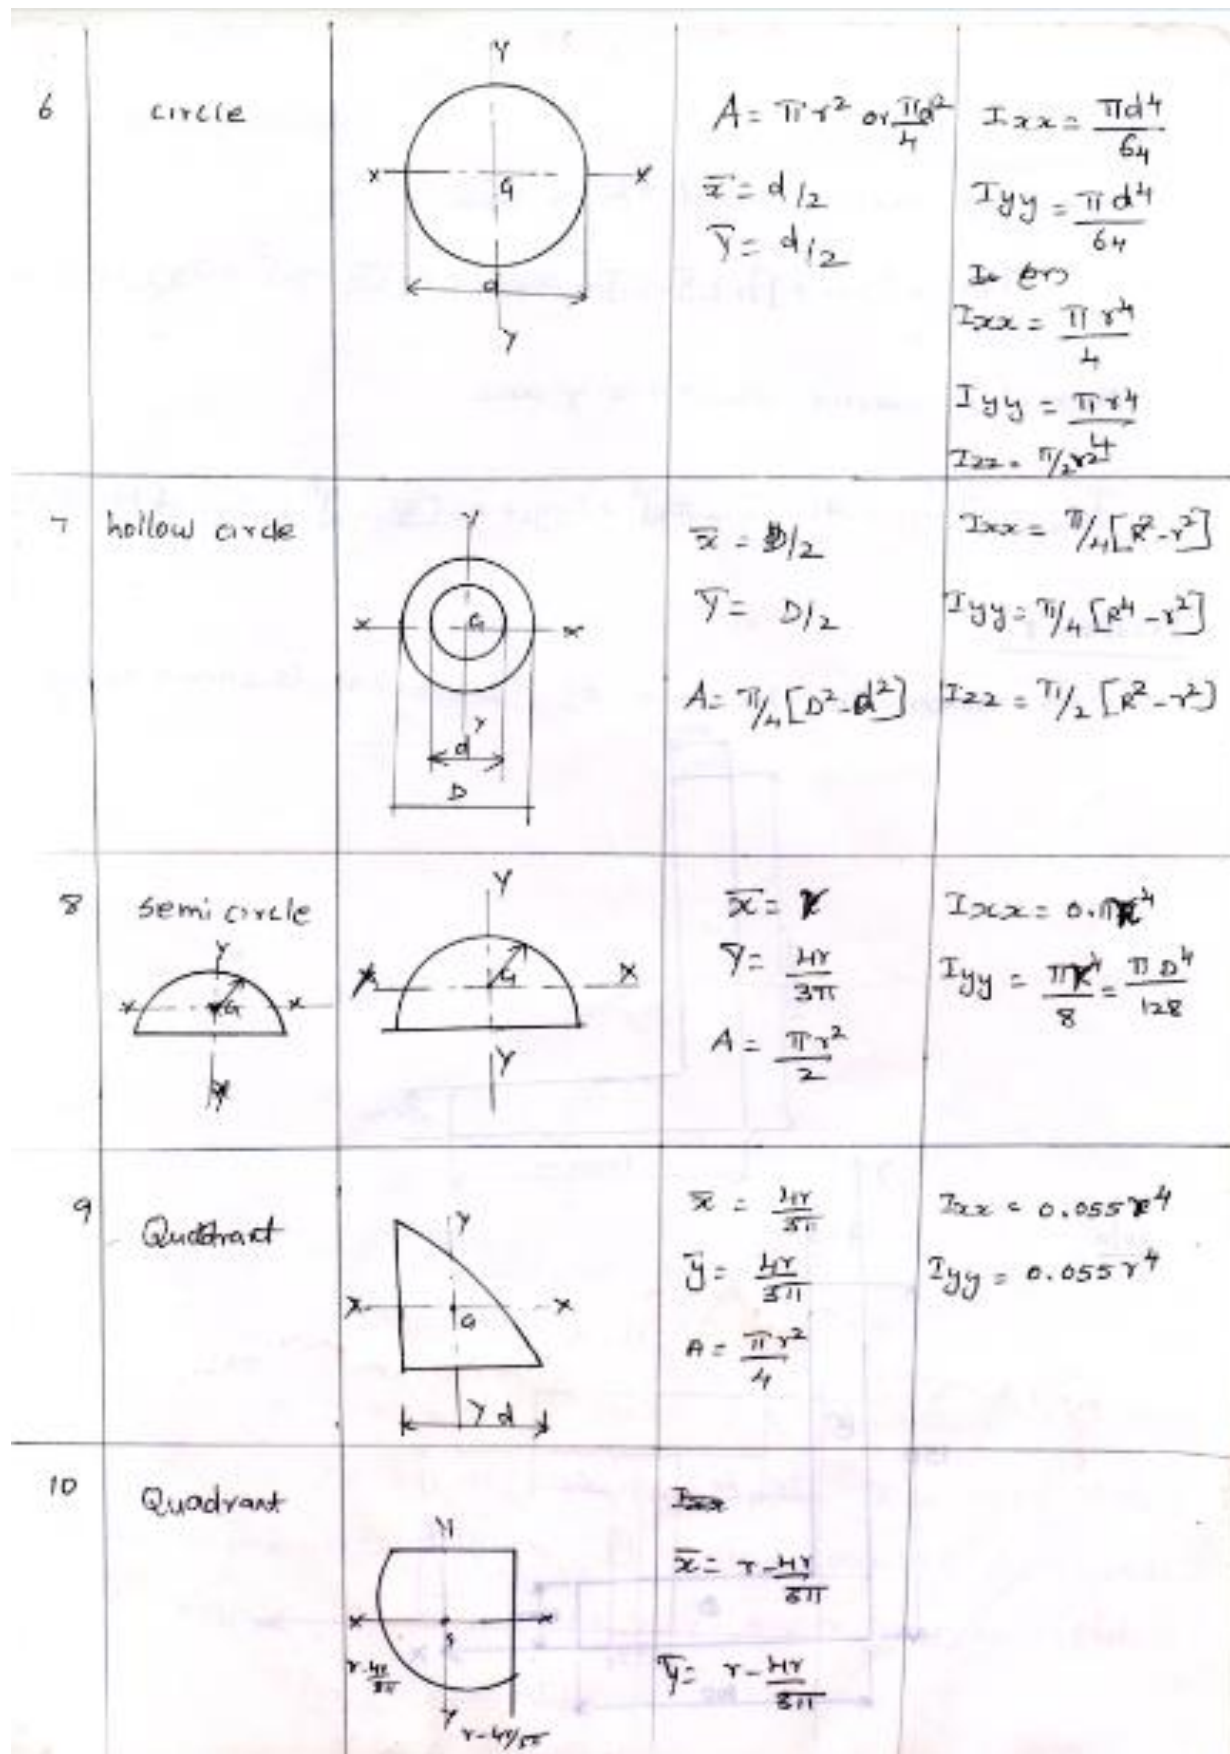 6 circle
Y
X G X
d
Y
A = πr² or πd²/4
x̄ = d/2
Ȳ = d/2
Ixx = πd⁴/64
Iyy = πd⁴/64
(or)
Ixx = πr⁴/4
Iyy = πr⁴/4
Izz = π/2 r⁴
7 hollow circle
Y
X G X
Y
d
D
x̄ = D/2
Ȳ = D/2
A = π/4 [D² - d²]
Ixx = π/4 [R² - r²]
Iyy = π/4 [R⁴ - r²]
Izz = π/2 [R² - r²]
8 semi circle
Y
X G X
Y
Y
X G X
Y
x̄ = r
Ȳ = 4r/3π
A = πr²/2
Ixx = 0.11r⁴
Iyy = πr⁴/8 = πD⁴/128
9 Quadrant
Y
X G X
Y d
x̄ = 4r/3π
ȳ = 4r/3π
A = πr²/4
Ixx = 0.055r⁴
Iyy = 0.055r⁴
10 Quadrant
Y
X G X
r - 4r/3π
Y r - 4r/3π
Ixx
x̄ = r - 4r/3π
ȳ = r - 4r/3π